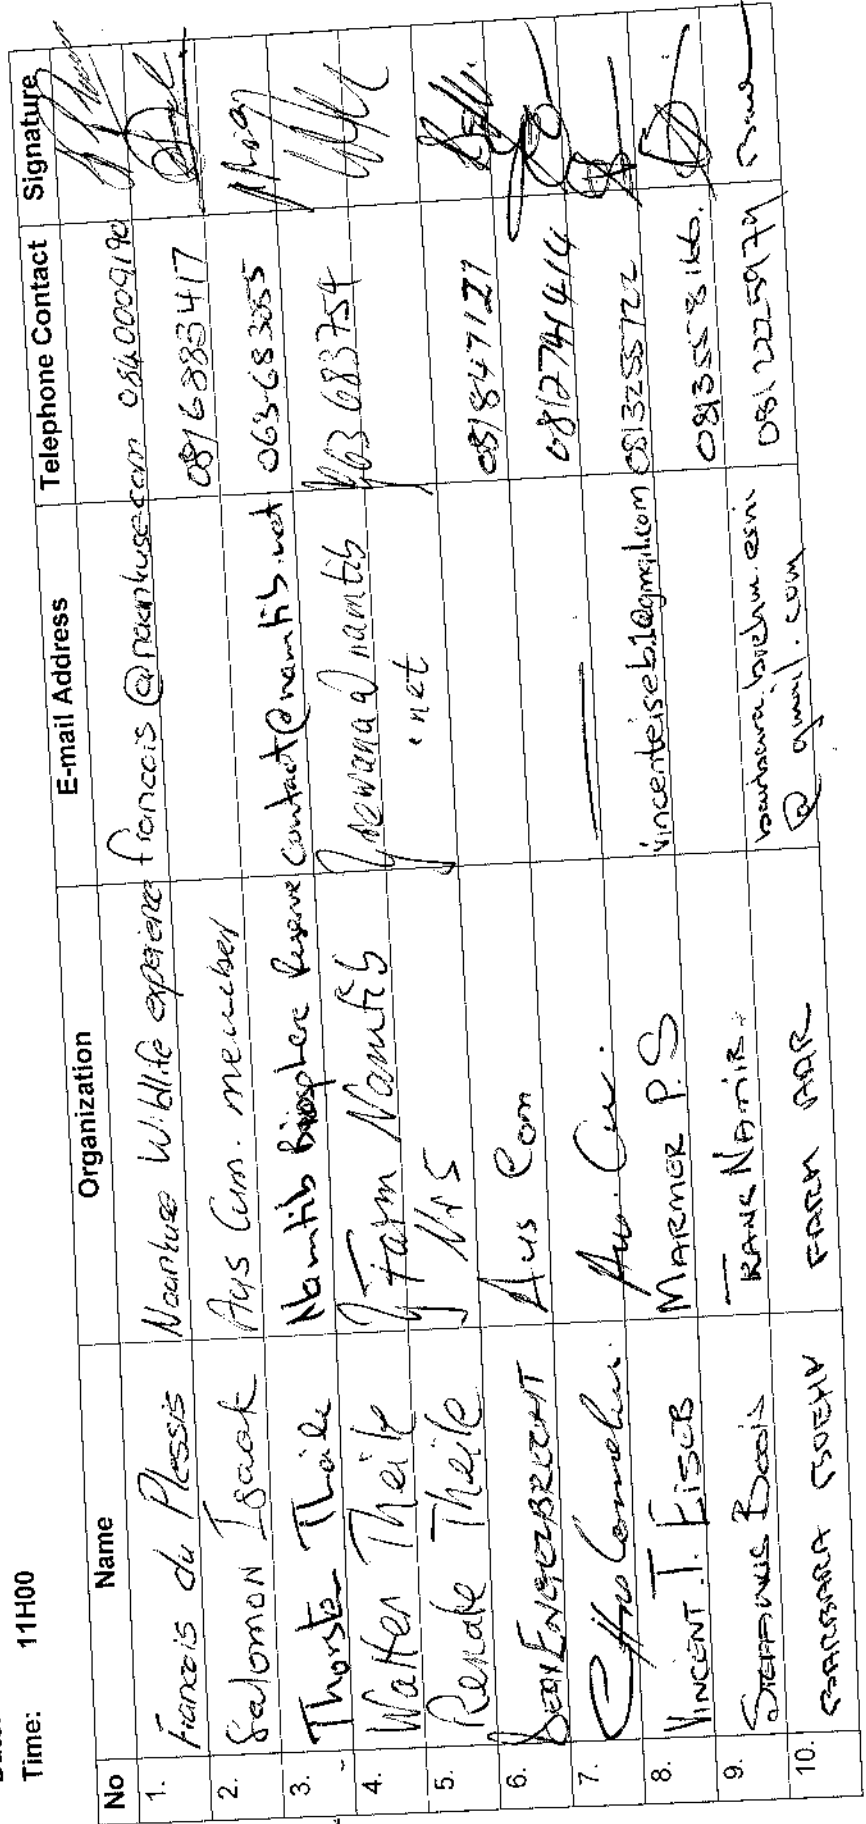 Time: 11H00
No Name Organization E-mail Address Telephone Contact Signature
1. Francois du Plessis Naankuse Wildlife experience francois@naankuse.com 0840009190
2. Salomon Isaak Aus Com. member 0816383417
3. Thorsten Theile Namtib Biosphere Reserve contact@namtib.net 063-683055
4. Walter Theile Farm Namtib namtib 063 683754
5. Renate Theile .net
6. ENGELBRECHT Aus Com 081847121
7. 0812741414
8. VINCENT. T. EISEB MARMER P.S vincenteiseb1@gmail.com 0813255722
9. Boois TRANS NAMIB. 0813558166.
10. BARBARA BOEHM FARM AAR barbara.boehm.esin
@gmail.com